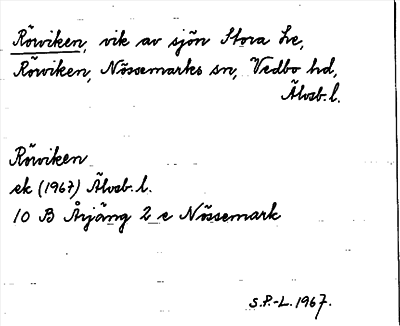 Rörviken, vik av sjön Stora Le,
Rörviken, Nössemarks sn, Vedbo hd,
Älvsb. l.
Rörviken
ek (1967) Älvsb. l.
10 B Årjäng 2 e Nössemark
S.P.-L. 1967.